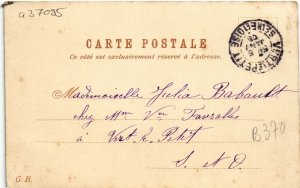 a37095
CARTE POSTALE
Ce côté est exclusivement réservé à l'adresse.
VERT-LE-PETIT
SEINE-ET-OISE
Mademoiselle Julia Babault
chez Mme Vve
à Vert le Petit
S. et O.
B370
G. B.